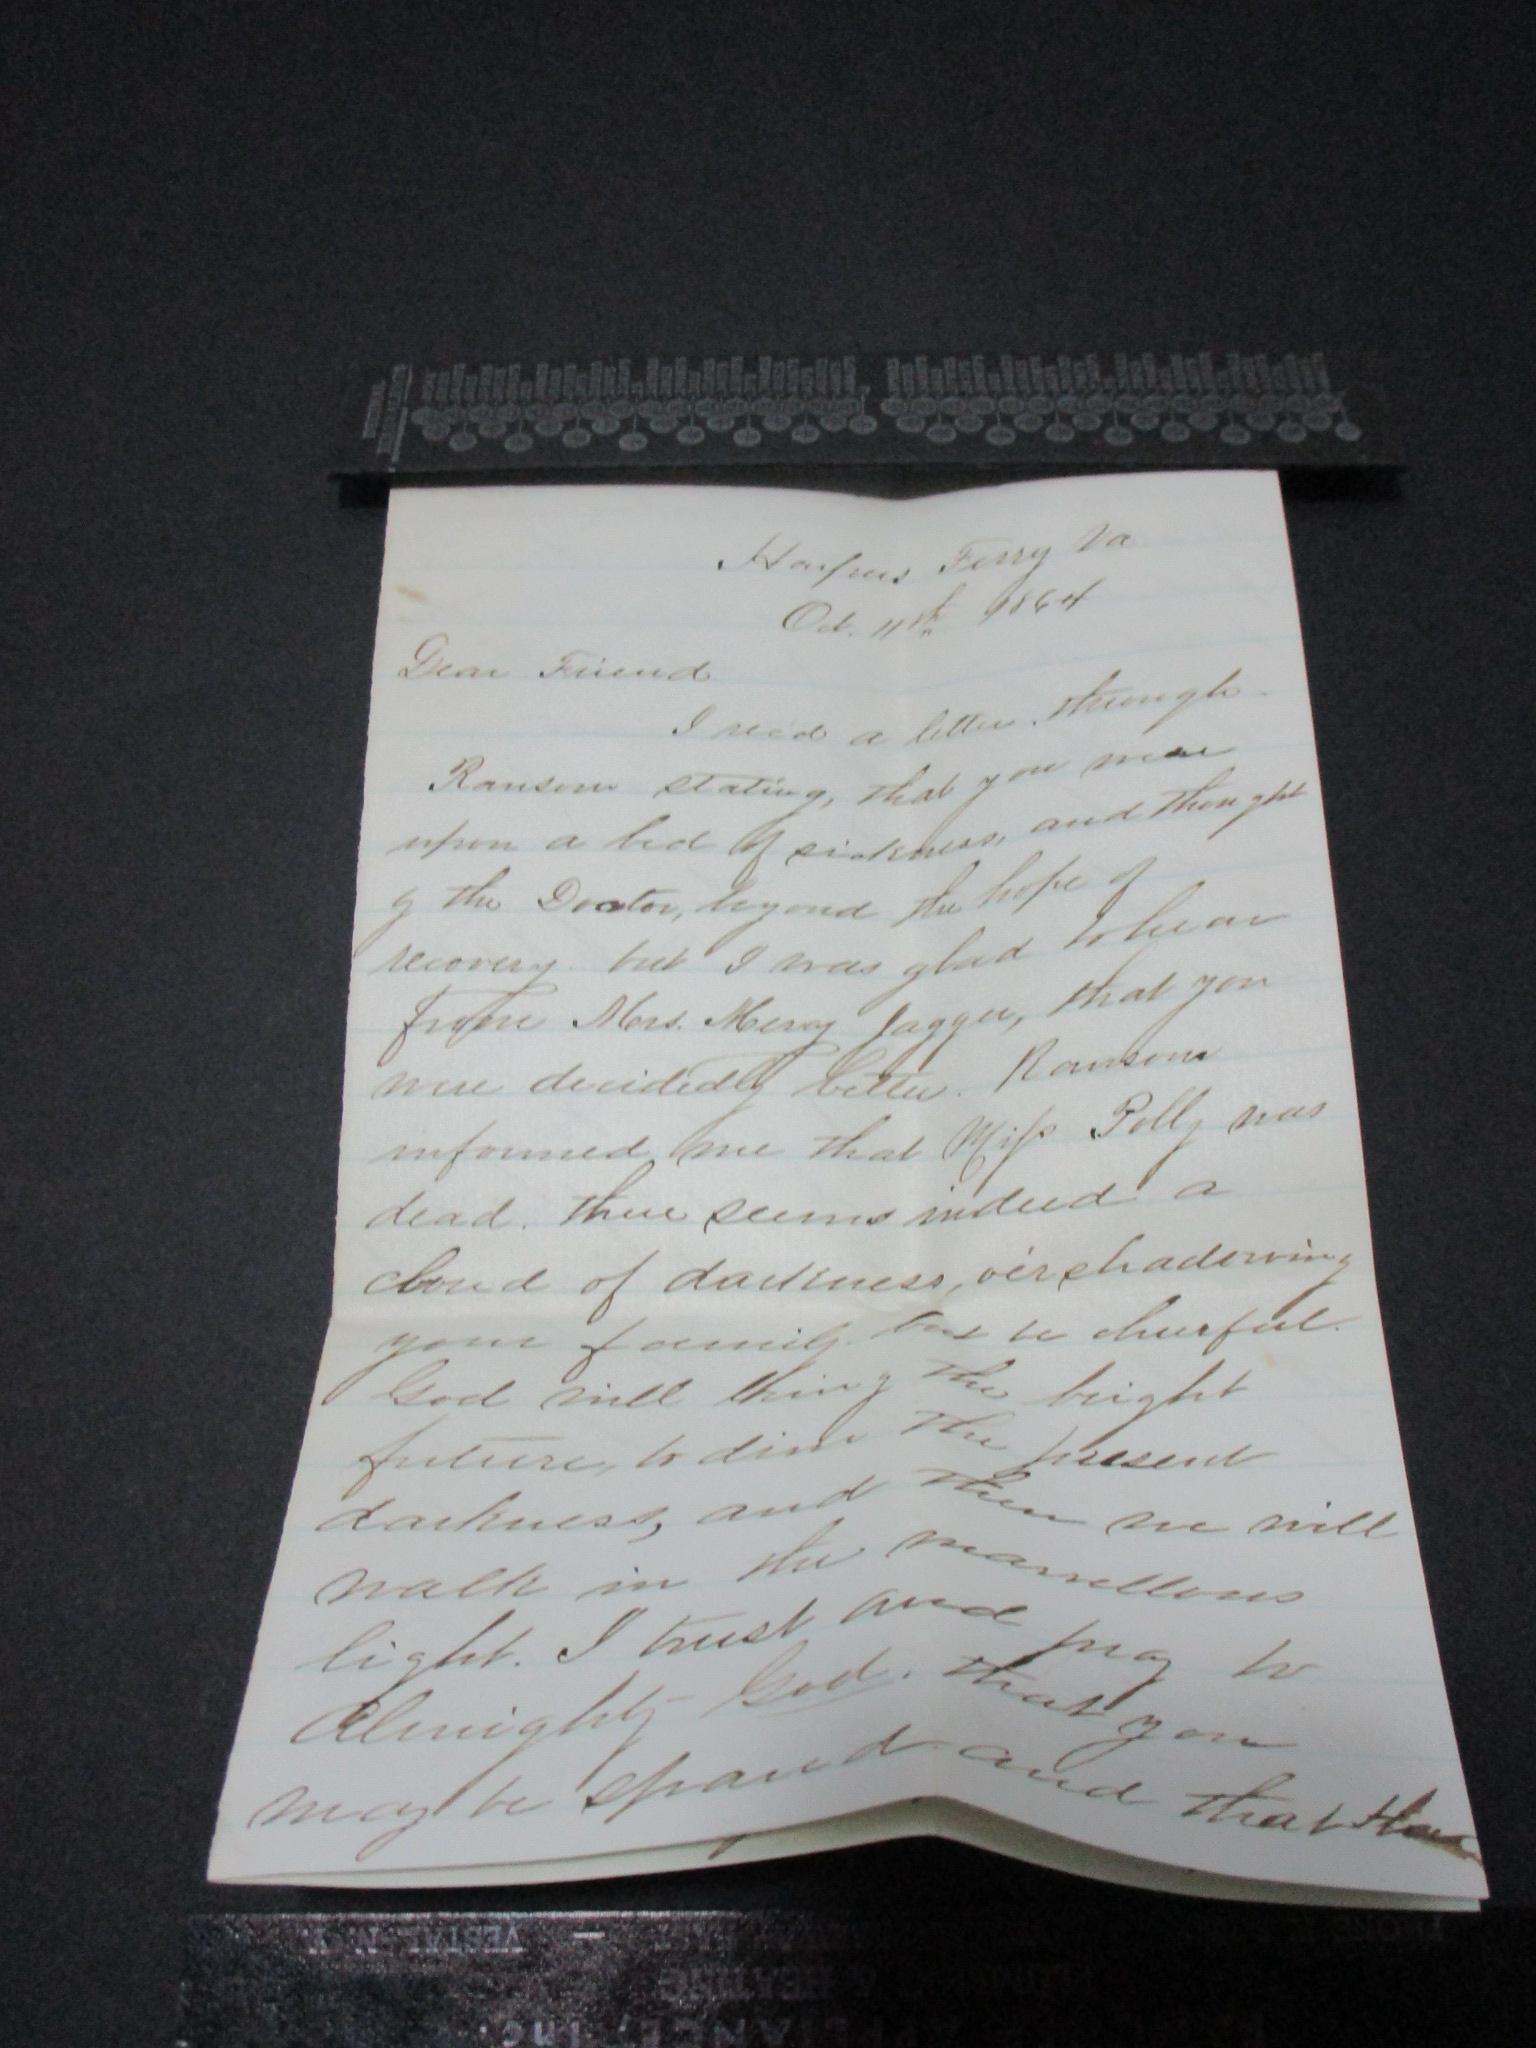 Harpers Ferry Va
Oct. 11th 1864
Dear Friend
I recd a letter through
Ransom stating, that you were
upon a bed of sickness, and thought
y the Doctor, beyond the hope of
recovery but I was glad to hear
from Mrs. Mercy Jagger, that you
were decidedly better. Ransom
informed me that Miss Polly was
dead. there seems indeed a
cloud of darkness, o'er shadowing
your family but be cheerful.
God will bring the bright
future, to dim the present
darkness, and then we will
walk in the marvellous
light. I trust and pray to
Almighty God. that you
may be spared and that
VESTAL, N.Y.
& HEATING
APPLIANCE, INC.